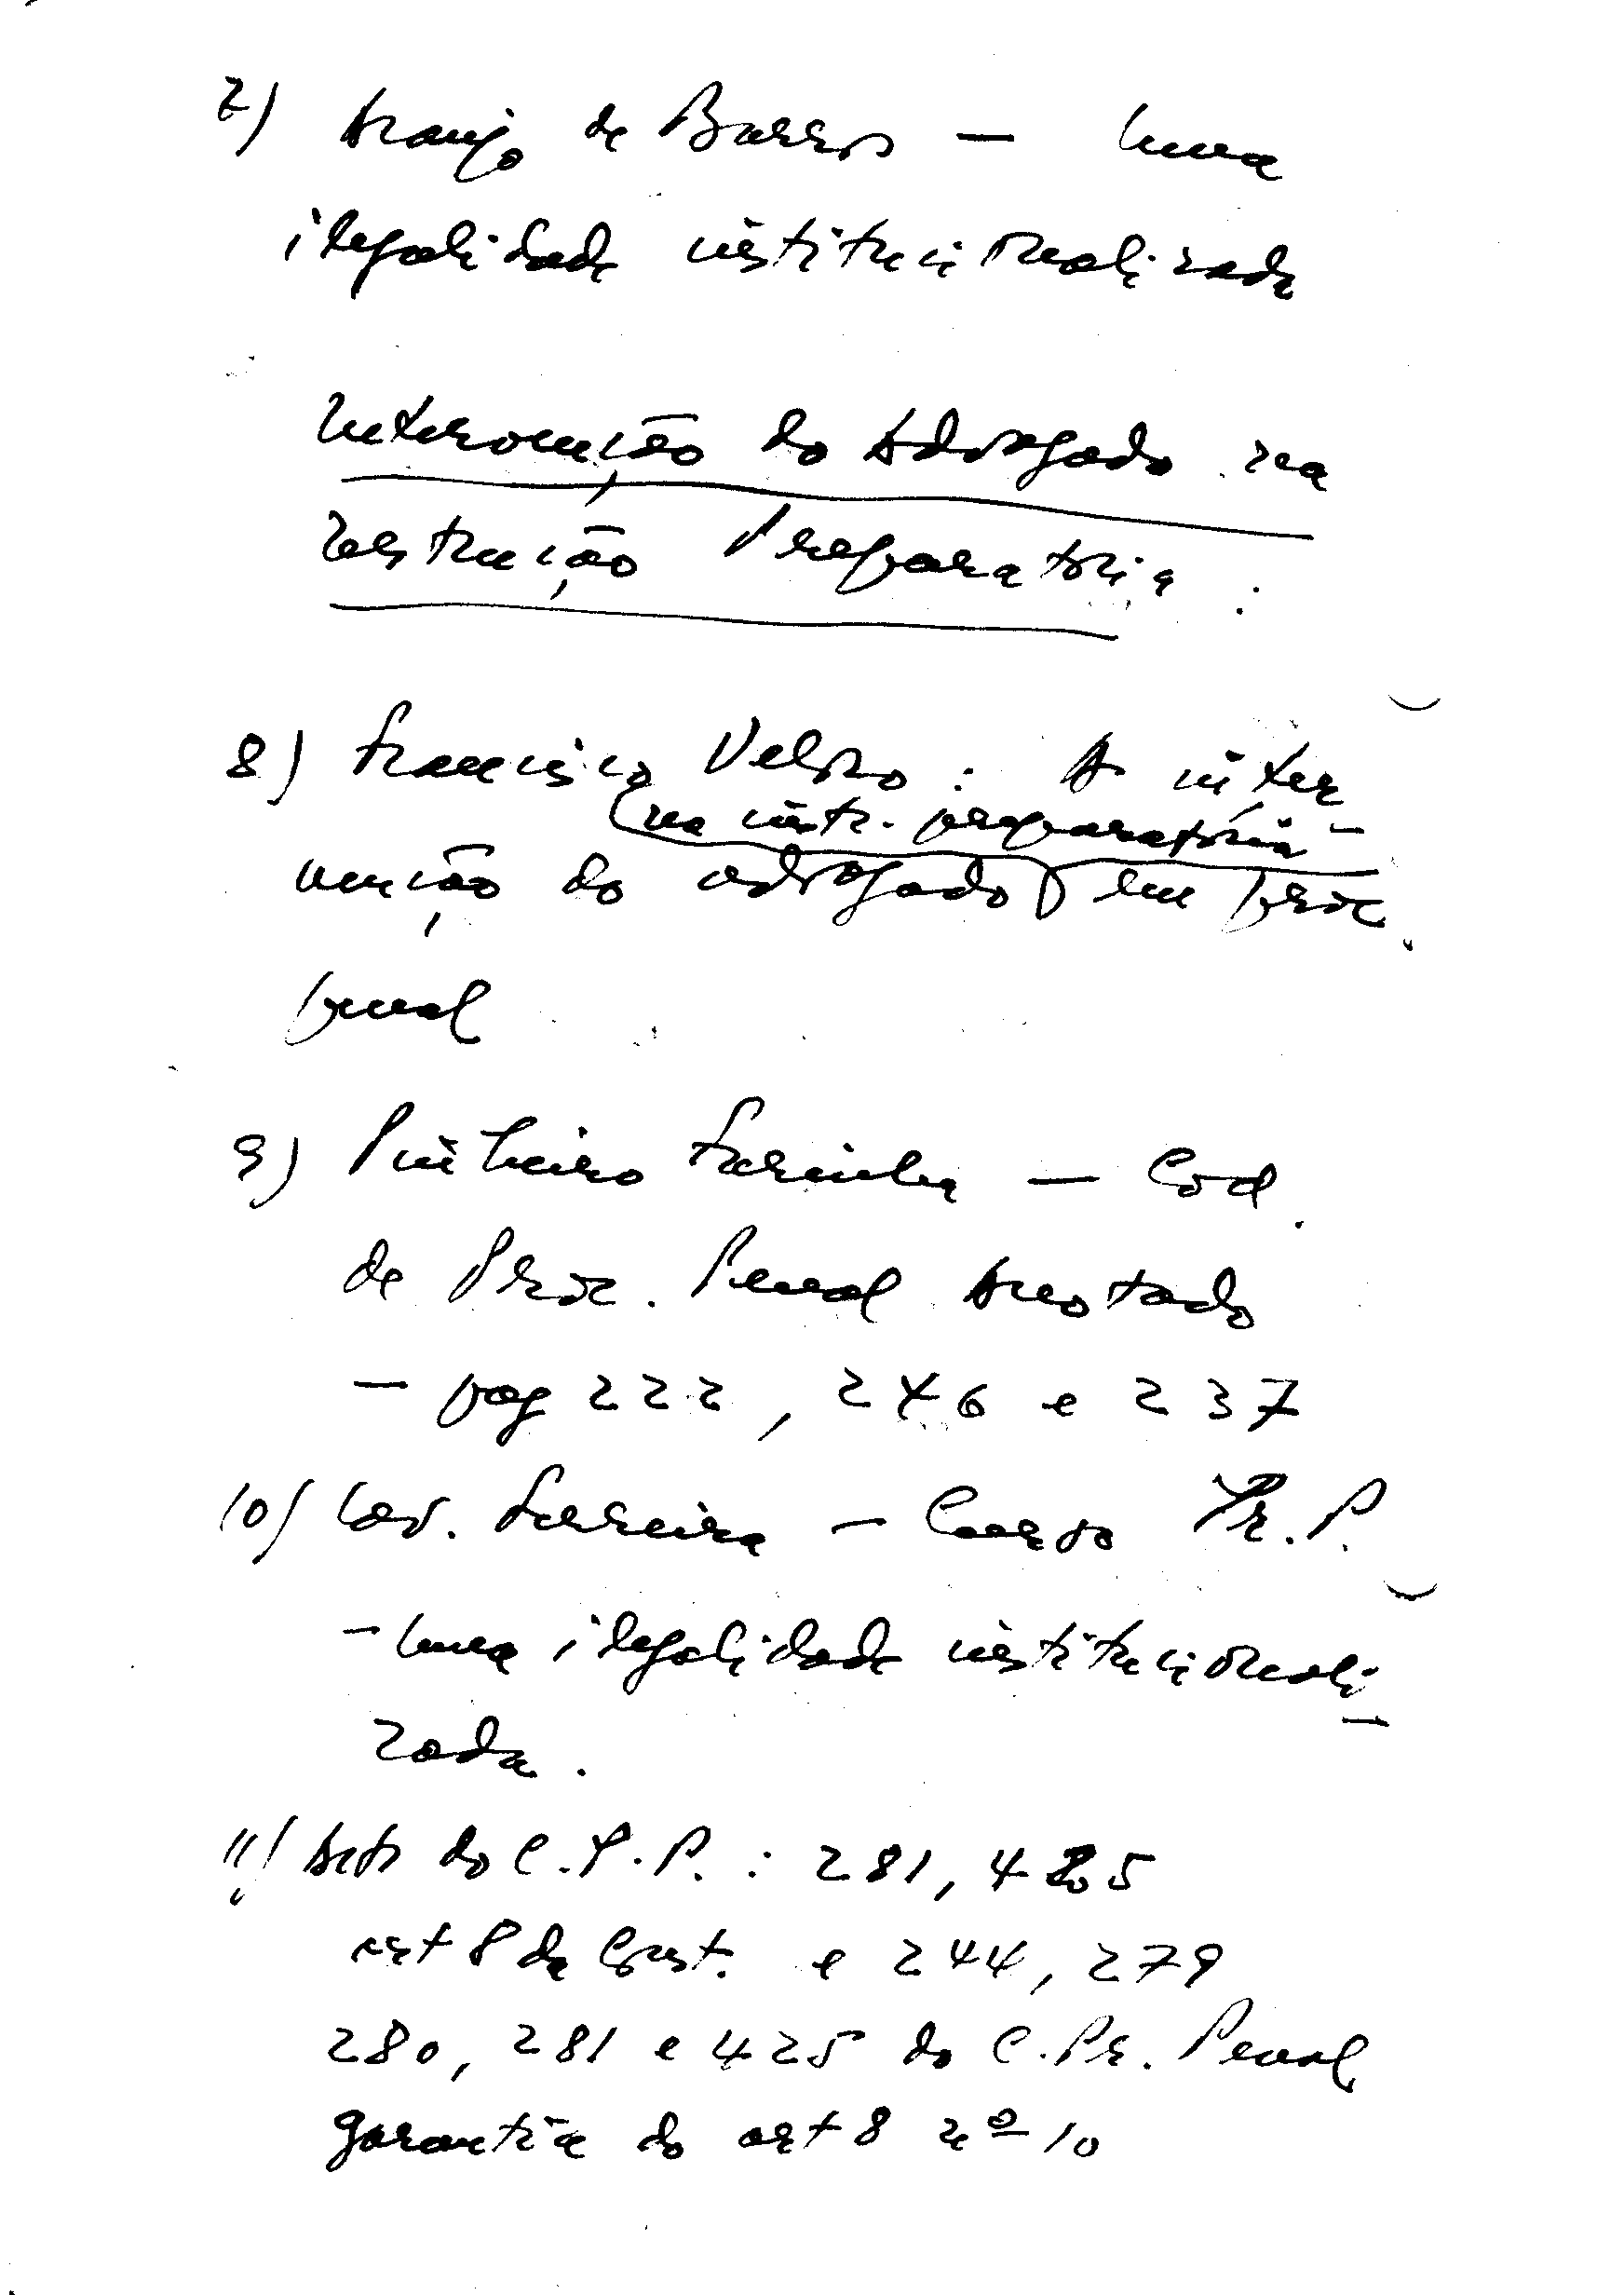 7) Araujo de Barros — Uma
ilegalidade institucionalizada
Intervenção do Advogado na
Instrução Preparatoria :
8) Francisco Veloso : A inter
(na instr. preparatória -
venção do advogado em proc.
penal
9) Pinheiro Farinha — Cod.
de Proc. Penal Anotado
— pag 222, 246 e 237
10) Cav. Ferreira — Curso Pr. P.
- Uma ilegalidade institucionali-
zada.
11) Arts do C.P.P. : 281, 425
art 8 da Const. e 244, 279
280, 281 e 425 do C. Pr. Penal
garantia do art 8 nº 10